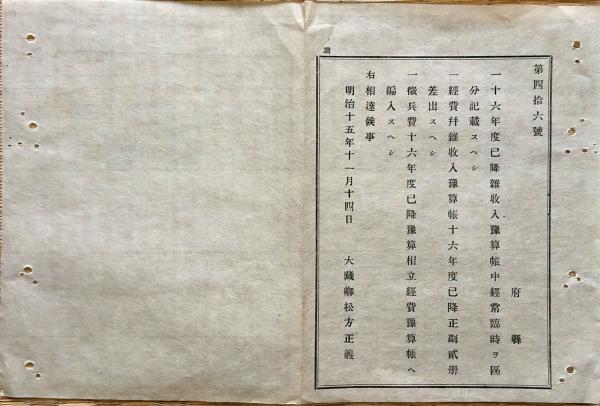 第四拾六號
府縣
一十六年度已降雜收入豫算帳中經常臨時ヲ區
分記載スヘシ
一經費幷雜收入豫算帳十六年度已降正副貳册
差出スヘシ
一徵兵費十六年度已降豫算相立經費豫算帳ヘ
編入スヘシ
右相達候事
明治十五年十一月十四日
大藏卿松方正義